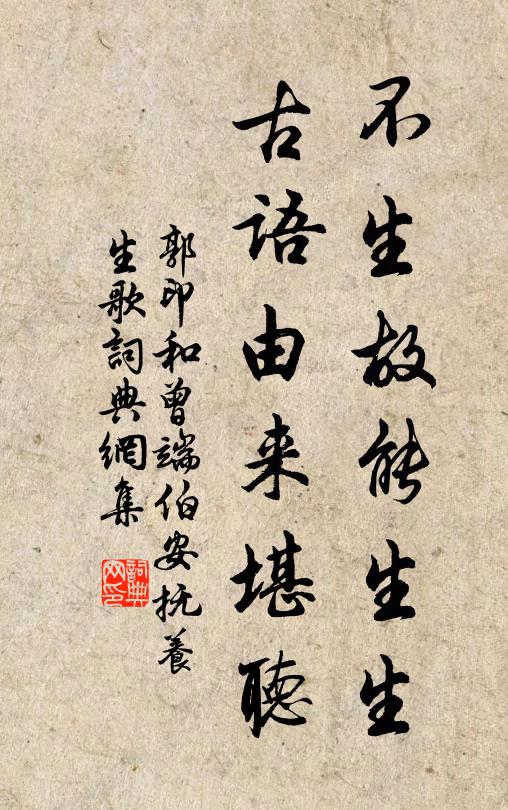 不生故能生生
古语由来堪聽
郭印和曾端伯安抚養
生歌詞典網集
詞典
网印